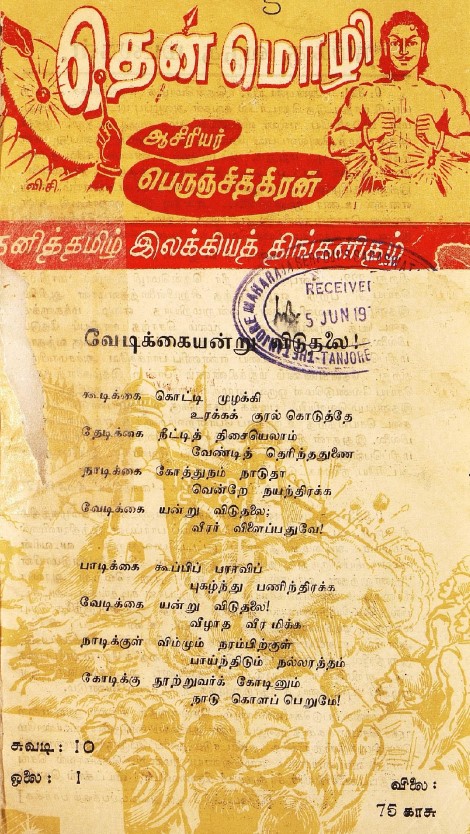 5
தென் மொழி
ஆசிரியர்
பெருஞ்சித்திரன்
வி.சி.
தனித்தமிழ் இலக்கியத் திங்களிதழ்
RECEIVED
5 JUN 19
TANJORE MAHARAJA
TANJORE
வேடிக்கையன்று விடுதலை!
கூடிக்கை கொட்டி முழக்கி
உரக்கக் குரல் கொடுத்தே
தேடிக்கை நீட்டித் திசையெலாம்
வேண்டித் தெரிந்ததுணை
நாடிக்கை கோத்துநம் நாடுதா
வென்றே நயந்திரக்க
வேடிக்கை யன்று விடுதலை;
வீரர் விளைப்பதுவே!
பாடிக்கை கூப்பிப் பராவிப்
புகழ்ந்து பணிந்திரக்க
வேடிக்கை யன்று விடுதலை!
வீழாத வீர மிக்க
நாடிக்குள் விம்மும் நரம்பிற்குள்
பாய்ந்திடும் நல்லரத்தம்
கோடிக்கு நூற்றுவர்க் கோடினும்
நாடு கொளப் பெறுமே!
சுவடி: 10
ஓலை: 1
விலை:
75 காசு